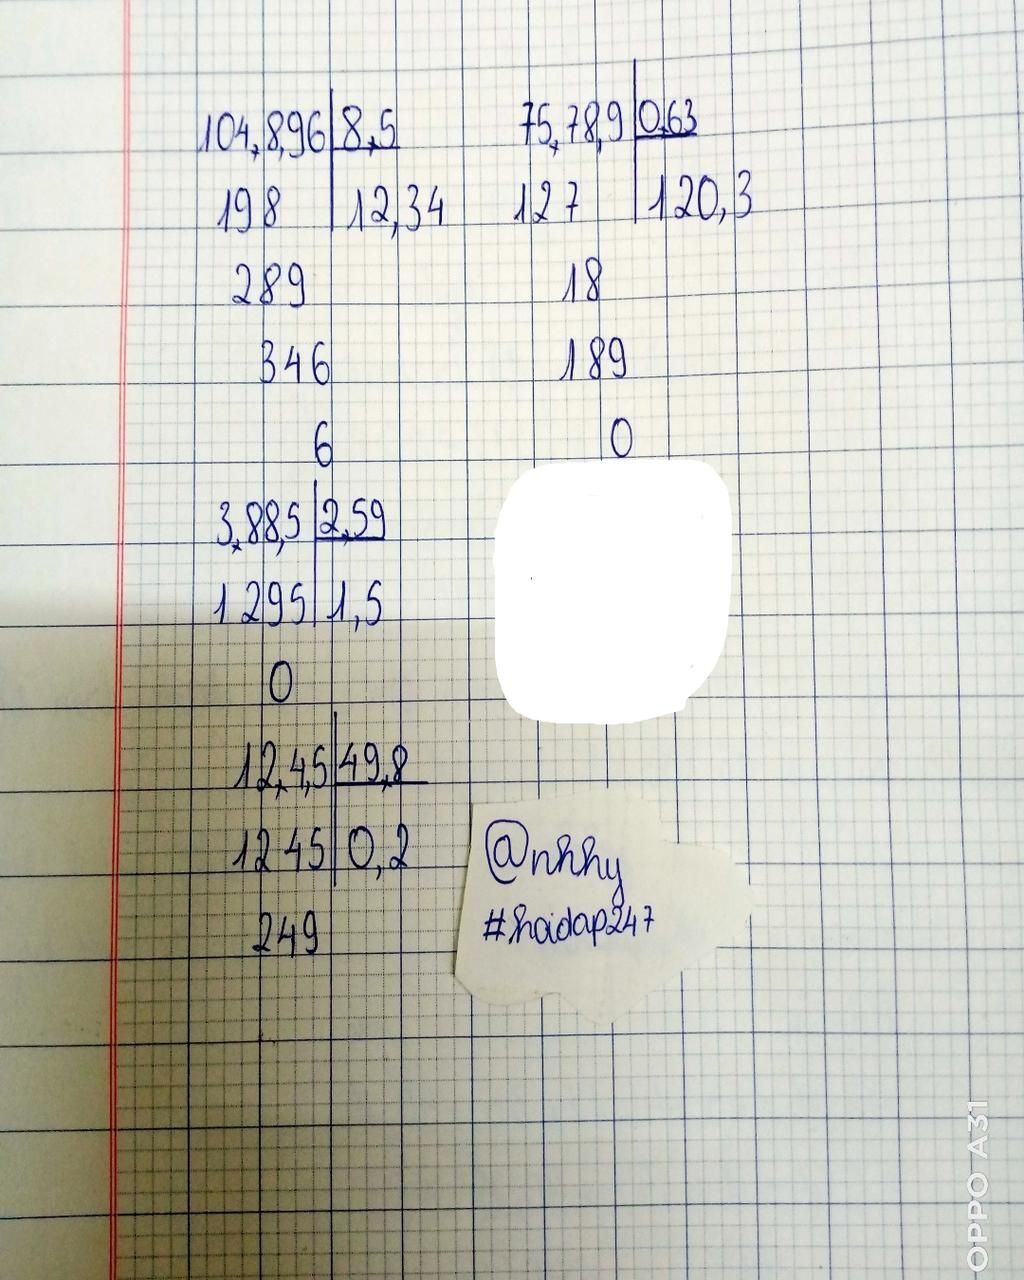 104,8,96 8,5
198 12,34
289
346
6
75,78,9 0,63
127 120,3
18
189
0
3,88,5 2,59
1295 1,5
0
12,4,5 49,8
1245 0,2
249
@nhhy
#hoidap247
OPPO A31